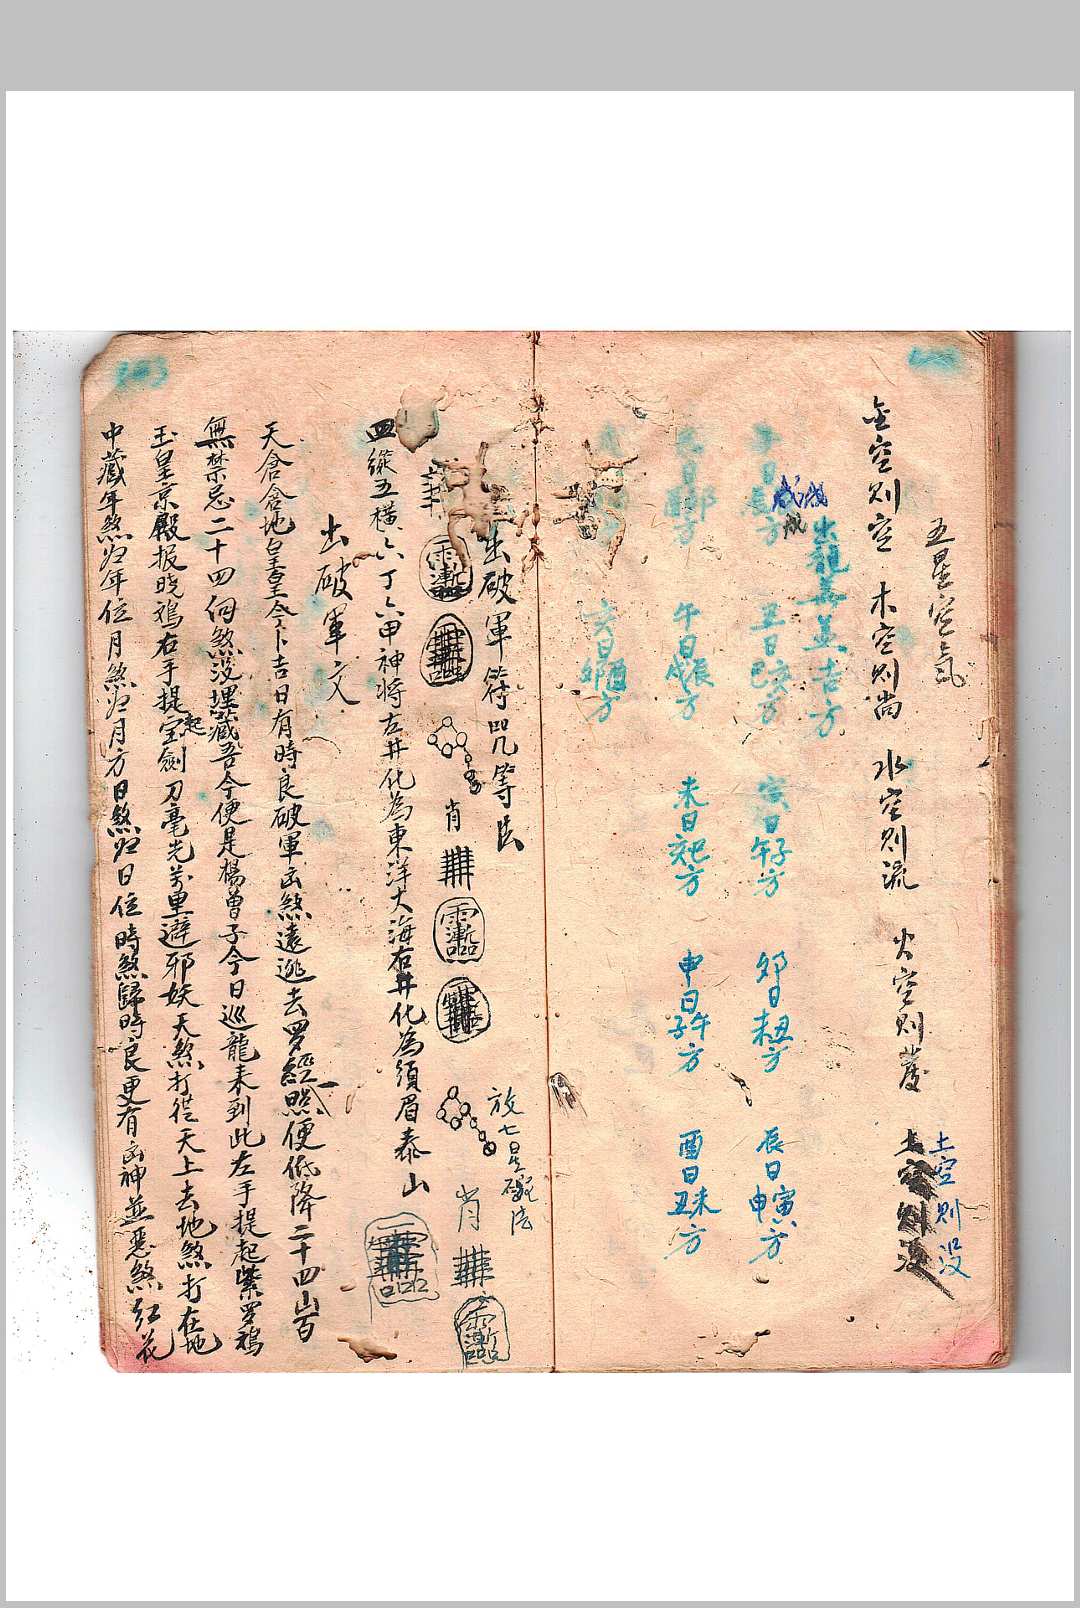 五星空氣
金空则空 木空则尚 水空则流 火空则發 土空则没
土空则没
出龍 盖吉方
子日 方 丑日巳亥方 寅日午子方 卯日未丑方 辰日申寅方
戌戌
戌
日酉卯方 午日戌辰方 未日亥巳方 申日子午方 酉日丑未方
亥日卯酉方
出破軍符咒等法
放七星碗法
肖 肖
四縱五橫六丁六甲神将左井化為東洋大海右井化為須眉泰山
出破軍文
天倉倉地皇皇今卜吉日有時良破軍凶煞遠逃去罗經照便低降二十四山百
無禁忌二十四向煞没埋藏吾今便是楊曾子今日巡龍来到此左手提起紫罗
玉皇京殿报晓 右手提起宝劍刀毫光萬里避邪妖天煞打從天上去地煞打在地
中藏年煞归年位月煞归月方日煞归日位時煞歸時良更有凶神並惡煞红花